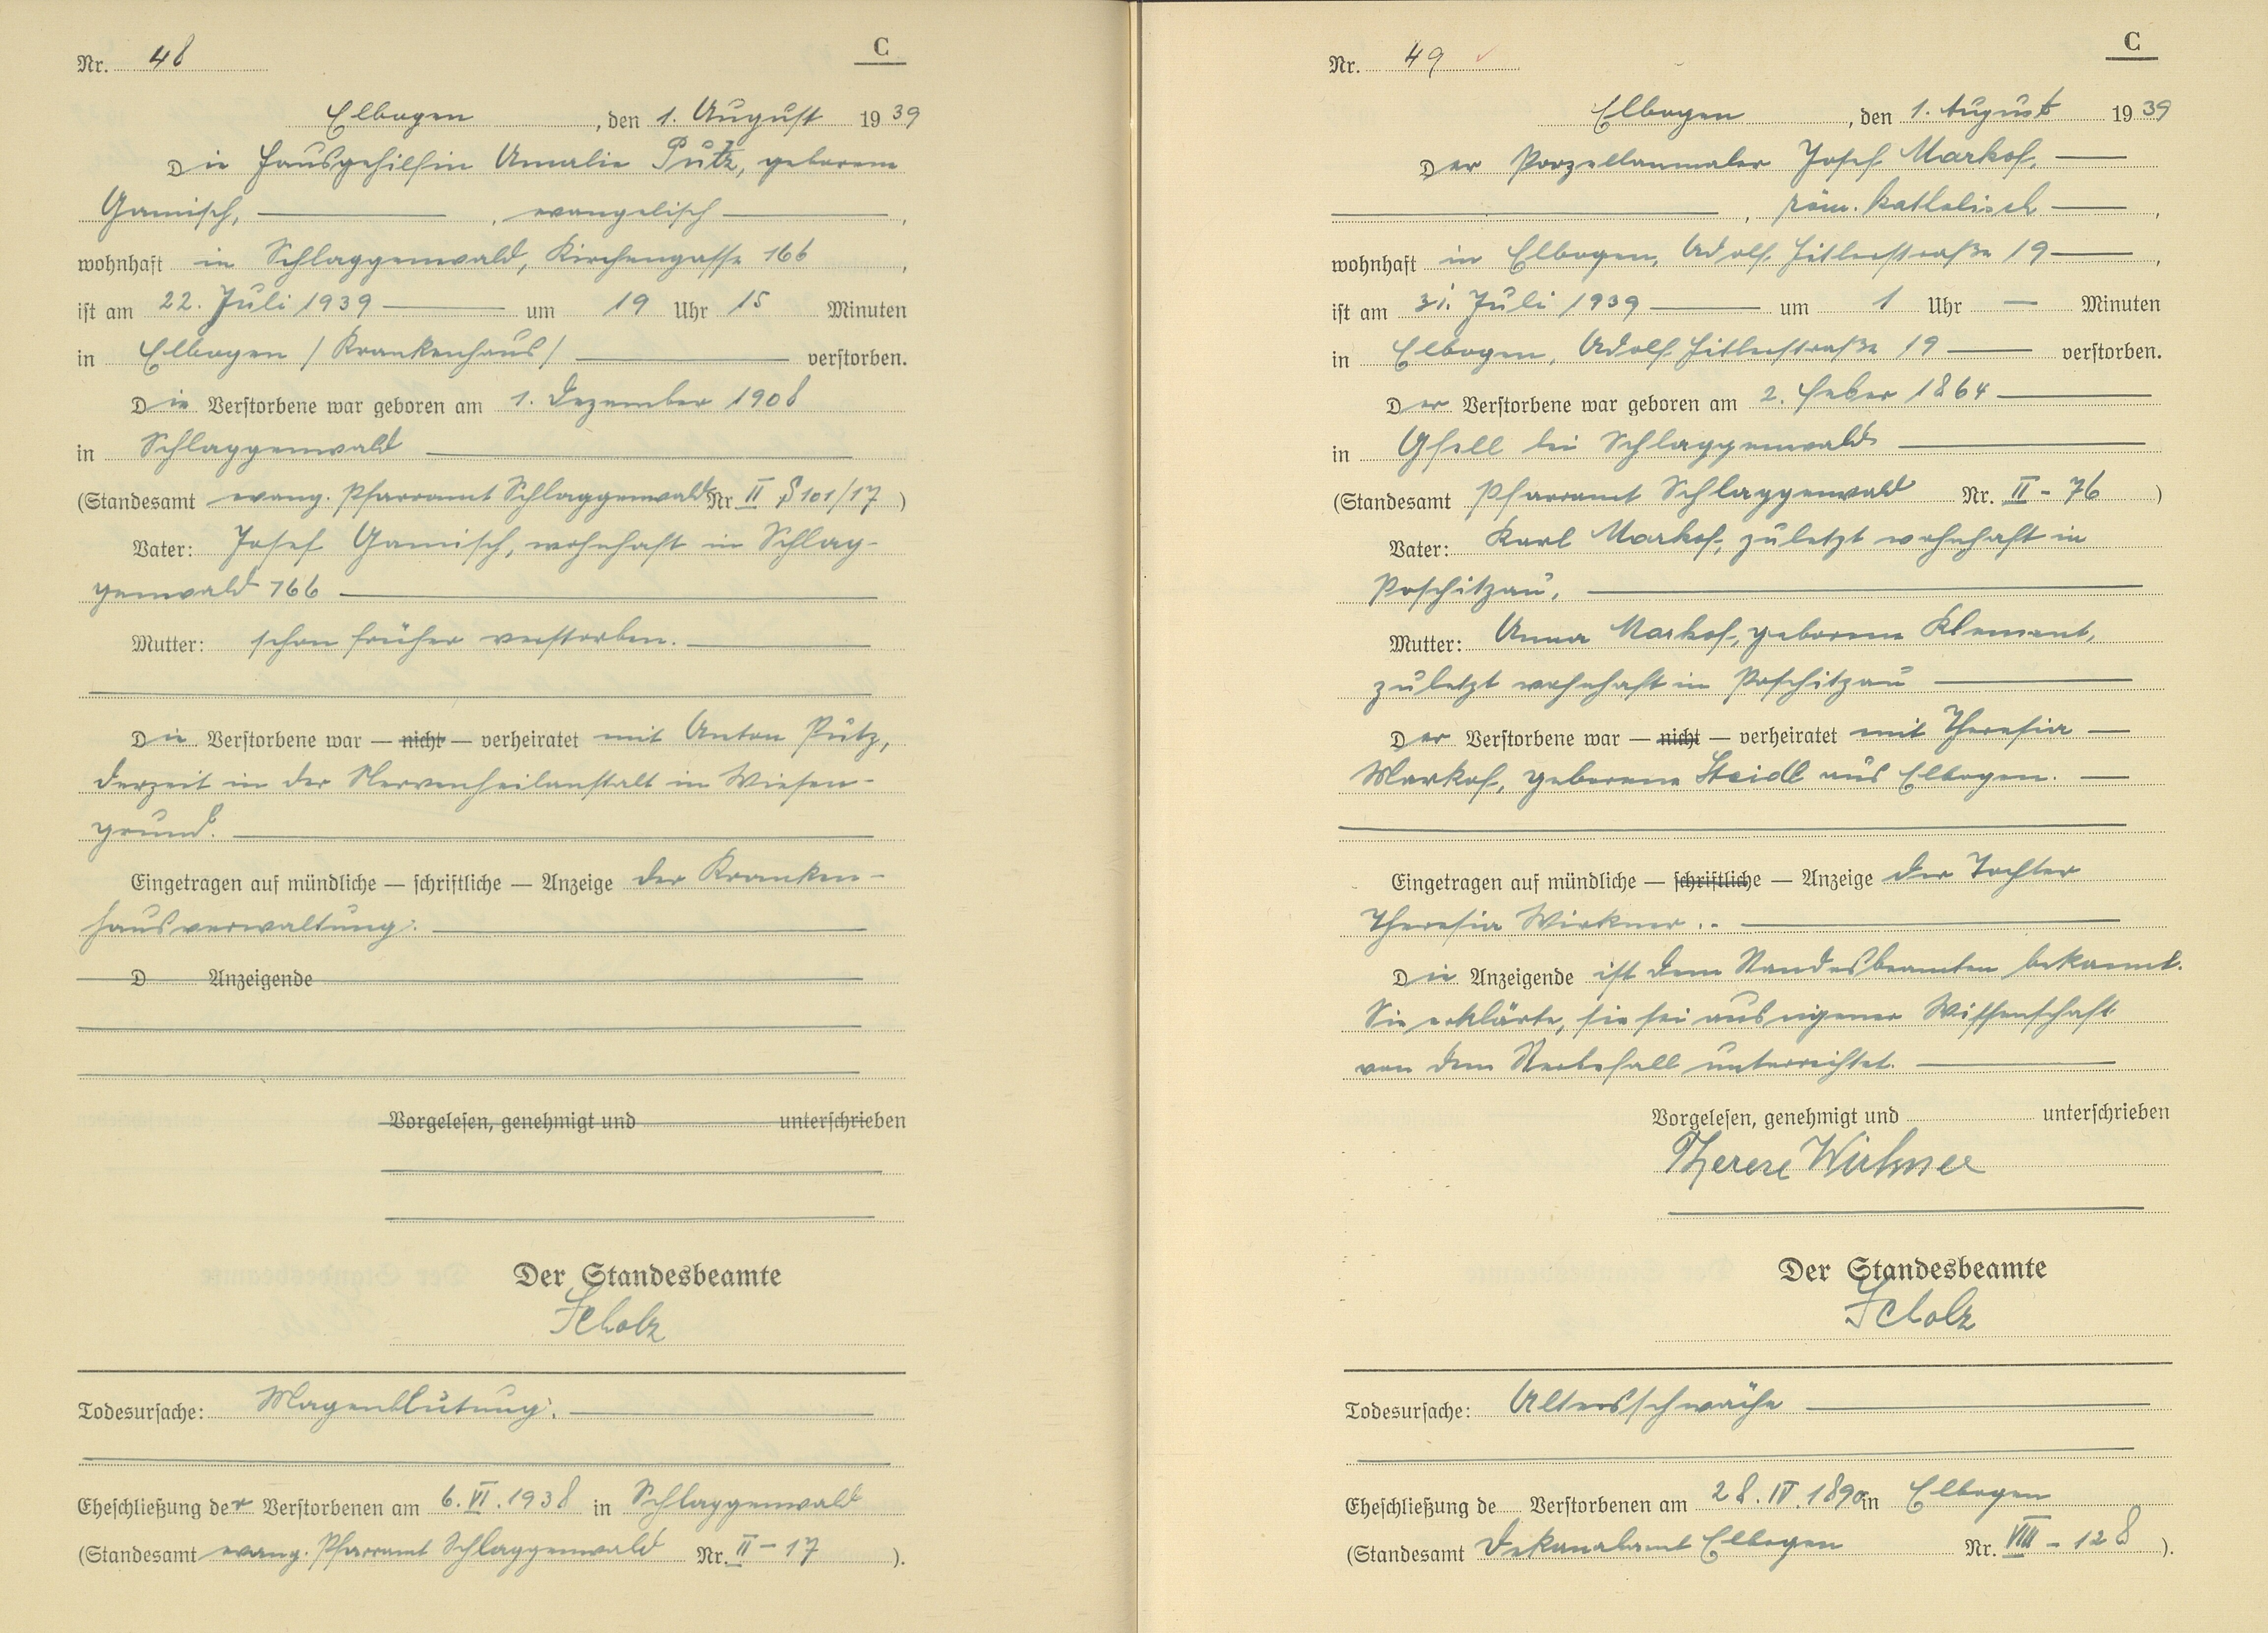 Nr. 48
C
Elbogen, den 1. August 1939
Die Hausgehilfin Amalie Pütz, geborene
Gamisch, evangelisch,
wohnhaft in Schlaggenwald, Kirchengasse 166,
ist am 22. Juli 1939 um 19 Uhr 15 Minuten
in Elbogen /Krankenhaus/ verstorben.
Die Verstorbene war geboren am 1. Dezember 1908
in Schlaggenwald
(Standesamt evang. Pfarramt Schlaggenwald Nr. II S 101/17)
Vater: Josef Gamisch, wohnhaft in Schlag-
genwald 166
Mutter: schon früher verstorben.
Die Verstorbene war — nicht — verheiratet mit Anton Pütz,
derzeit in der Nervenheilanstalt in Wiesen-
grund.
Eingetragen auf mündliche — schriftliche — Anzeige der Kranken-
hausverwaltung.
D Anzeigende
Vorgelesen, genehmigt und unterschrieben
Der Standesbeamte
Scholz
Todesursache: Magenblutung.
Eheschließung der Verstorbenen am 6. VI. 1938 in Schlaggenwald
(Standesamt evang. Pfarramt Schlaggenwald Nr. II - 17).
Nr. 49
C
Elbogen, den 1. August 1939
Der Porzellanmaler Josef Markof,
, röm. katholisch,
wohnhaft in Elbogen, Adolf Hitlerstraße 19,
ist am 31. Juli 1939 um 1 Uhr — Minuten
in Elbogen, Adolf Hitlerstraße 19 verstorben.
Der Verstorbene war geboren am 2. Feber 1864
in Gfell bei Schlaggenwald
(Standesamt Pfarramt Schlaggenwald Nr. II - 76)
Vater: Karl Markof, zuletzt wohnhaft in
Poschitzau,
Mutter: Anna Markof, geborene Klement,
zuletzt wohnhaft in Poschitzau
Der Verstorbene war — nicht — verheiratet mit Theresia
Markof, geborene Steidl aus Elbogen.
Eingetragen auf mündliche — schriftliche — Anzeige der Tochter
Theresia Wirkner..
Die Anzeigende ist dem Standesbeamten bekannt.
Sie erklärte, sie sei aus eigener Wissenschaft
von dem Sterbefall unterrichtet.
Vorgelesen, genehmigt und unterschrieben
Therese Wirkner
Der Standesbeamte
Scholz
Todesursache: Altersschwäche
Eheschließung de Verstorbenen am 28. IV. 1890 in Elbogen
(Standesamt Dekanalamt Elbogen Nr. VIII - 128).